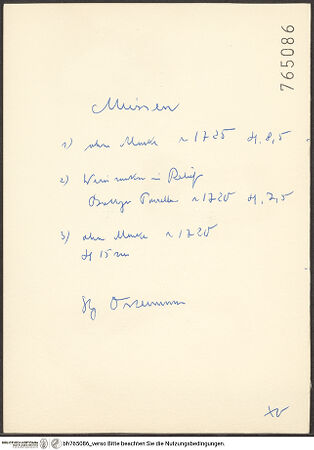 765086
Meissen
1) ohne Marke ~ 1725 H. 8,5
2) Weinranken in Relief
Böttger Porzellan ~ 1720 H. 7,5
3) ohne Marke ~ 1720
H 15 cm
Slg
XV
bh765086_verso Bitte beachten Sie die Nutzungsbedingungen.